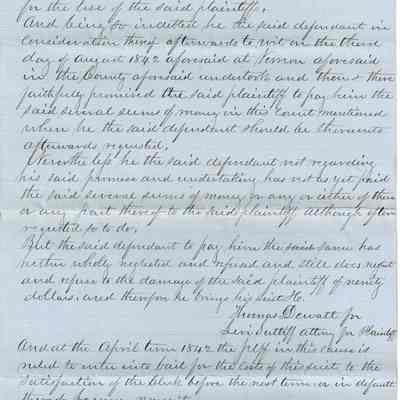 for the use of the said plaintiff.
And being so indebted he the said defendant in
consideration thereof afterwards to wit on the third
day of August 1842 aforesaid at Vernon aforesaid
in the County aforesaid undertook and then & there
faithfully promised the said plaintiff to pay him the
said several sums of money in this Count mentioned
when he the said defendant should be thereunto
afterwards requested.
Nevertheless he the said defendant not regarding
his said promise and undertaking has not as yet paid
the said several sums of money or any or either of them
or any part thereof to the said plaintiff although often
requested so to do,
But the said defendant to pay him the same has
hitherto wholly neglected and refused and still does neglect
and refuse to the damage of the said plaintiff of
dollars: and therefore he brings his suit &c.
Thomas Dewatt Jr
Levi Sutliff Attny for Plaintiff
And at the April term 1842 the pltff in this cause is
ruled to enter into bail for the costs of this suit to the
satisfaction of the Clerk before the next term or in default